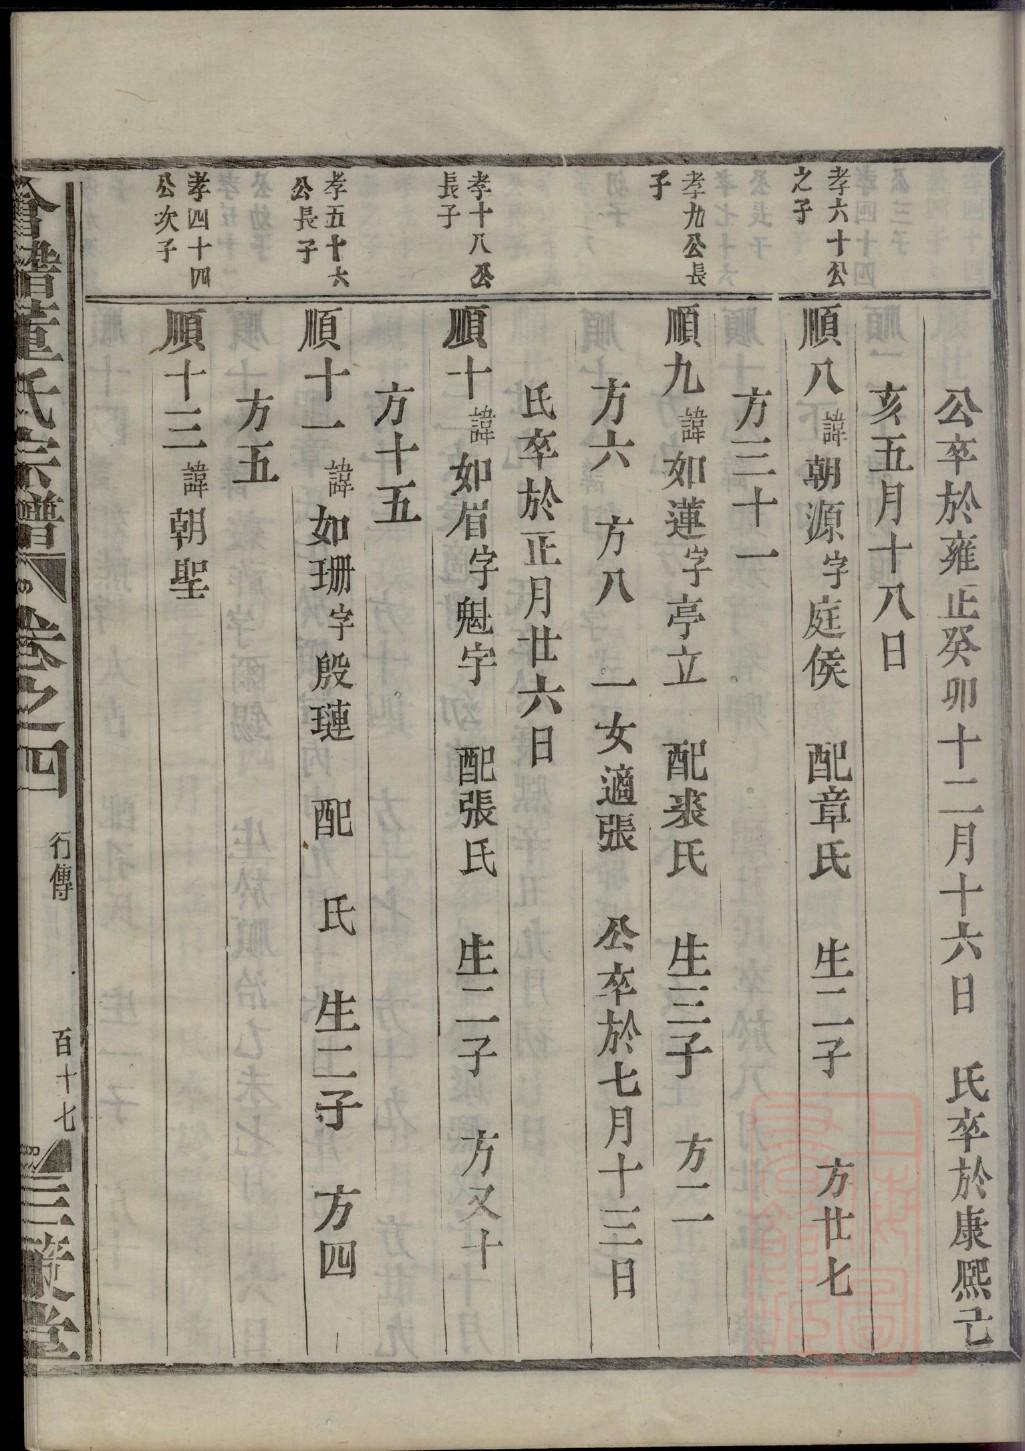 公卒於雍正癸卯十二月十六日 氏卒於康熙己
亥五月十八日
孝六十公
之子
順八諱朝源字庭侯 配章氏 生二子 方廿七
方三十一
孝九公長
子
順九諱如蓮字亭立 配裘氏 生三子 方二
方六 方八 一女適張 公卒於七月十三日
氏卒於正月廿六日
孝十八公
長子
順十諱如眉字魁宇 配張氏 生二子 方又十
方十五
孝五十六
公長子
順十一諱如珊字殷璉 配 氏 生二子 方四
方五
孝四十四
公次子
順十三諱朝聖
會稽董氏宗譜 卷之四 行傳 百十七 三策堂